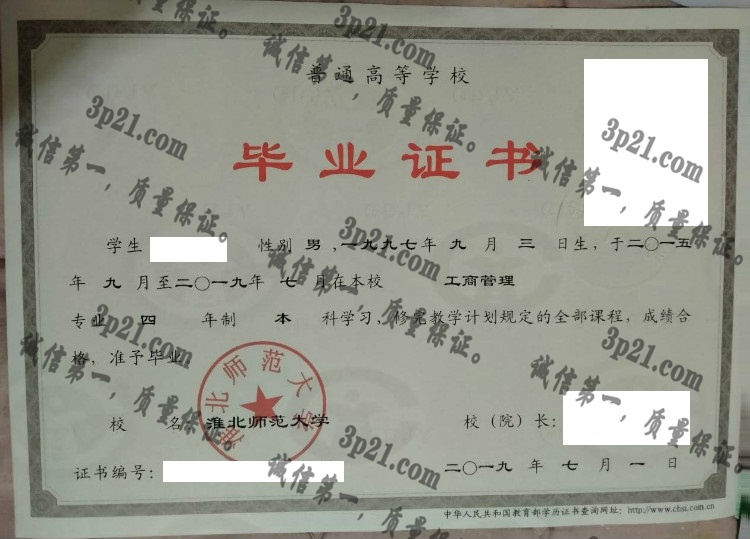 普通高等学校
毕业证书
学生 性别 男 ,一九九七年 九 月 三 日生，于二〇一五
年 九 月至二〇一九年 七 月在本校 工商管理
专业 四 年制 本 科学习，修完教学计划规定的全部课程，成绩合
格，准予毕业
淮北师范大学
校 名 淮北师范大学 校（院）长：
证书编号： 二〇一九 年 七 月 一 日
中华人民共和国教育部学历证书查询网址：http://www.chsi.com.cn
3p21.com
诚信第一，质量保证。
3p21.com
诚信第一，质量保证。
3p21.com
诚信第一，质量保证。
3p21.com
诚信第一，质量保证。
3p21.com
诚信第一，质量保证。
3p21.com
诚信第一，质量保证。
3p21.com
诚信第一，质量保证。
3p21.com
诚信第一，质量保证。